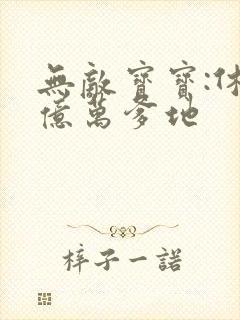 無敵寶寶:休
億萬爹地
梓子一諾